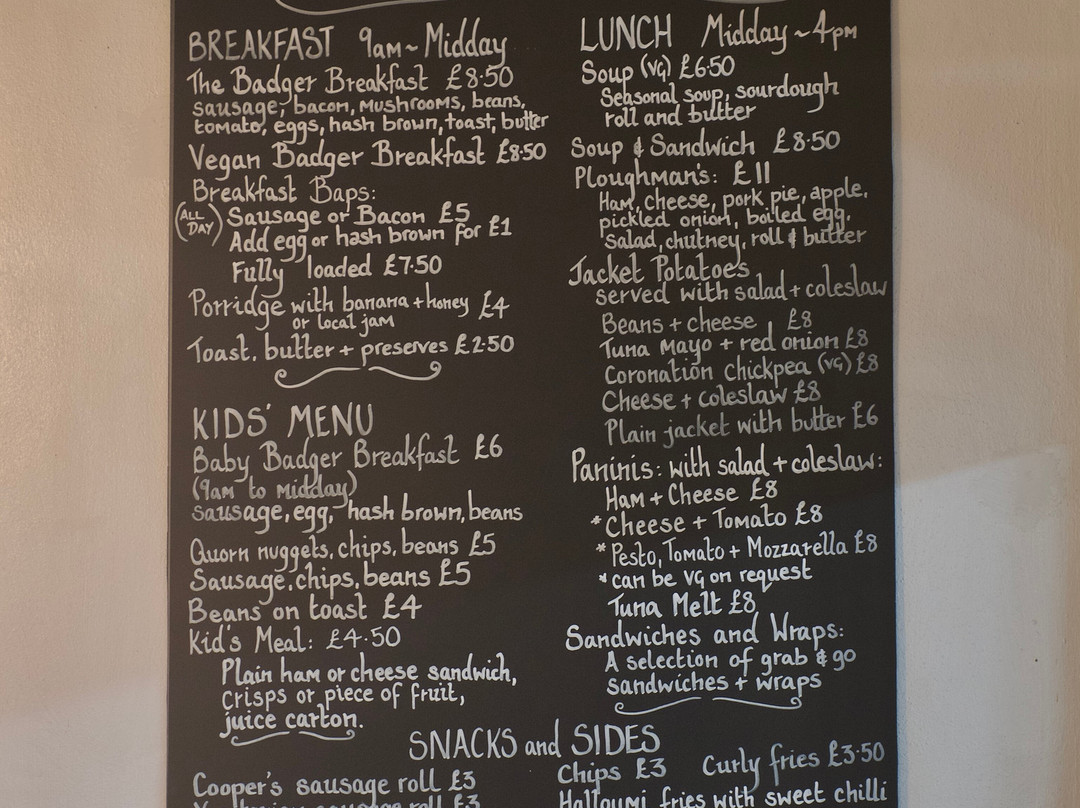 BREAKFAST 9am~Midday
The Badger Breakfast £8·50
sausage, bacon, mushrooms, beans,
tomato, eggs, hash brown, toast, butter
Vegan Badger Breakfast £8·50
Breakfast Baps:
(ALL DAY) Sausage or Bacon £5
Add egg or hash brown for £1
Fully loaded £7·50
Porridge with banana + honey £4
or local jam
Toast, butter + preserves £2·50
KIDS' MENU
Baby Badger Breakfast £6
(9am to midday)
sausage, egg, hash brown, beans
Quorn nuggets, chips, beans £5
Sausage, chips, beans £5
Beans on toast £4
Kid's Meal: £4·50
Plain ham or cheese sandwich,
crisps or piece of fruit,
juice carton.
LUNCH Midday~4pm
Soup (VG) £6·50
Seasonal soup, sourdough
roll and butter
Soup & Sandwich £8·50
Ploughman's: £11
Ham, cheese, pork pie, apple,
pickled onion, boiled egg,
salad, chutney, roll & butter
Jacket Potatoes
served with salad + coleslaw
Beans + cheese £8
Tuna mayo + red onion £8
Coronation chickpea (VG) £8
Cheese + coleslaw £8
Plain jacket with butter £6
Paninis: with salad + coleslaw:
Ham + Cheese £8
*Cheese + Tomato £8
*Pesto, Tomato + Mozzarella £8
*can be VG on request
Tuna Melt £8
Sandwiches and Wraps:
A selection of grab & go
sandwiches + wraps
SNACKS and SIDES
Cooper's sausage roll £3
sausage roll £3
Chips £3 Curly fries £3·50
Halloumi fries with sweet chilli